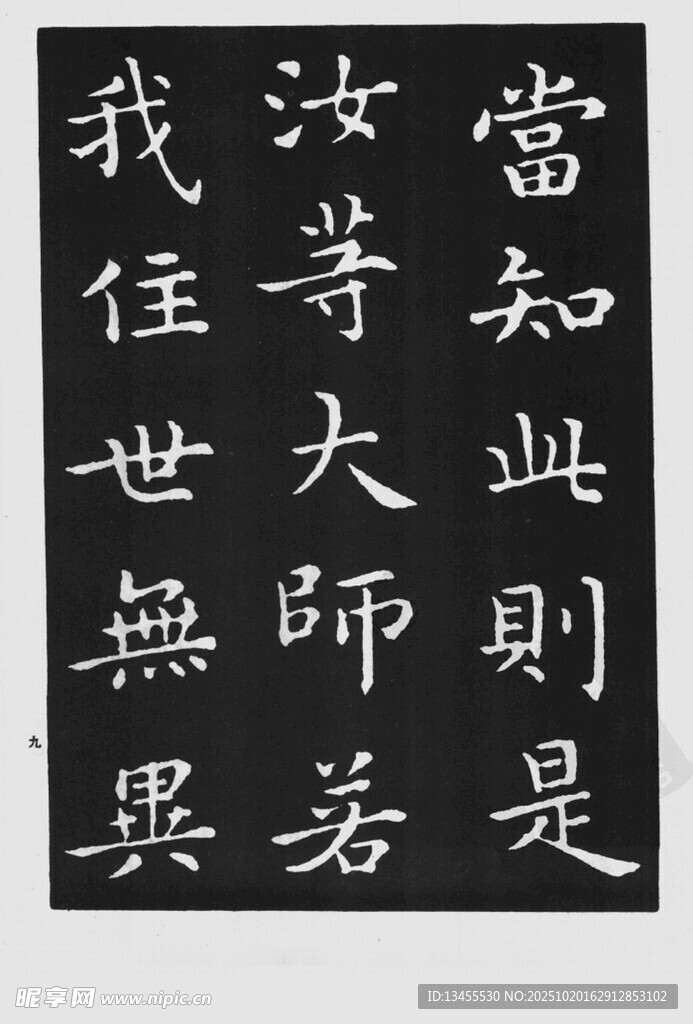 當知此則是
汝等大師若
我住世無異
九
昵享网 www.nipic.cn
ID:13455530 NO:20251020162912853102